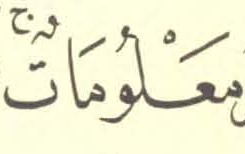 مَعْلُومَاتٌ ۚ